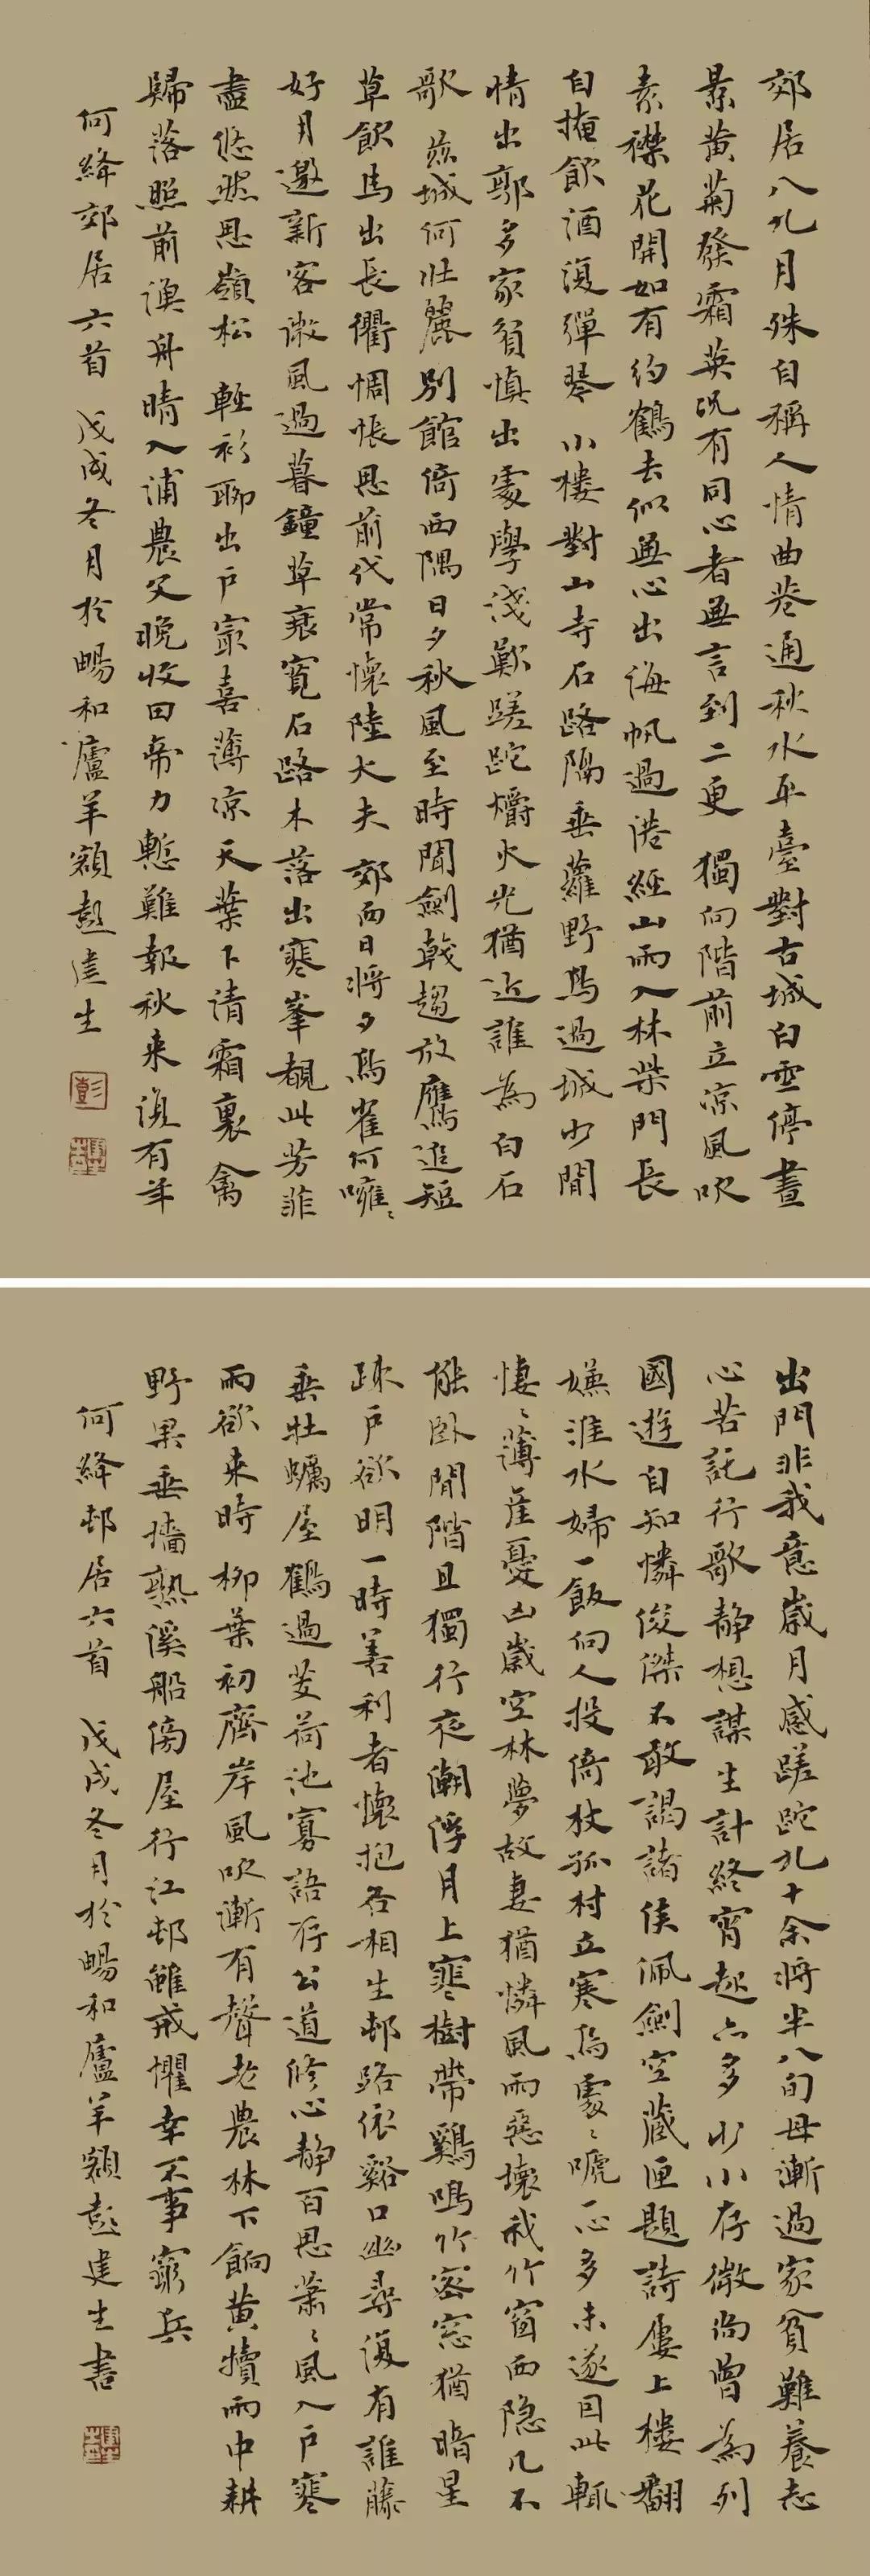 郊居八九月殊自稱人情曲巷通秋水平臺對古城白雲停晝
景黃菊發霜英況有同心者無言到二更 獨向階前立涼風吹
素襟花開如有約鶴去似無心出海帆過港經山雨入林柴門長
自掩飲酒復彈琴 小樓對山寺石路隔垂蘿野鳥過城少閒
情出郭多家貧慎出處學淺歎蹉跎爝火光猶近誰為白石
歌 茲城何壯麗別館倚西隅日夕秋風至時聞劍戟趨放鷹追短
草飲馬出長衢惆悵思前代常懷陸大夫 郊西日將夕鳥雀何噰〻
好月邀新客微風過暮鐘草衰寬石路木落出寒峯覩此芳菲
盡悠然思嶺松 輕衫聊出戶最喜薄涼天葉下清霜裏禽
歸落照前漁舟晴入浦農父晚收田帝力慙難報秋來復有年
何絳郊居六首 戊戌冬月於暢和廬羊額彭建生
出門非我意歲月感蹉跎九十余將半八旬母漸過家貧難養志
心苦託行歌靜想謀生計終宵起亦多 少小存微尚曾為列
國遊自知憐俊傑不敢謁諸侯佩劍空藏匣題詩屢上樓翻
嫌淮水婦一飯向人投 倚杖孤村立寒烏處〻嗁一心多未遂因此輒
悽〻薄產憂凶歲空林夢故妻猶憐風雨惡壞我竹窗西 隱几不
能臥閒階且獨行夜潮浮月上寒樹帶鷄鳴竹密窓猶暗星
疎戶欲明一時善利者懷抱各相生 邨路依谿口幽尋復有誰藤
垂牡蠣屋鶴過芰荷池寡語存公道修心靜百思蕭〻風入戶寒
雨欲來時 柳葉初齊岸風吹漸有聲老農林下餉黃犢雨中耕
野果垂墻熟溪船傍屋行江邨雖戒懼幸不事窮兵
何絳邨居六首 戊戌冬月於暢和廬羊額彭建生書